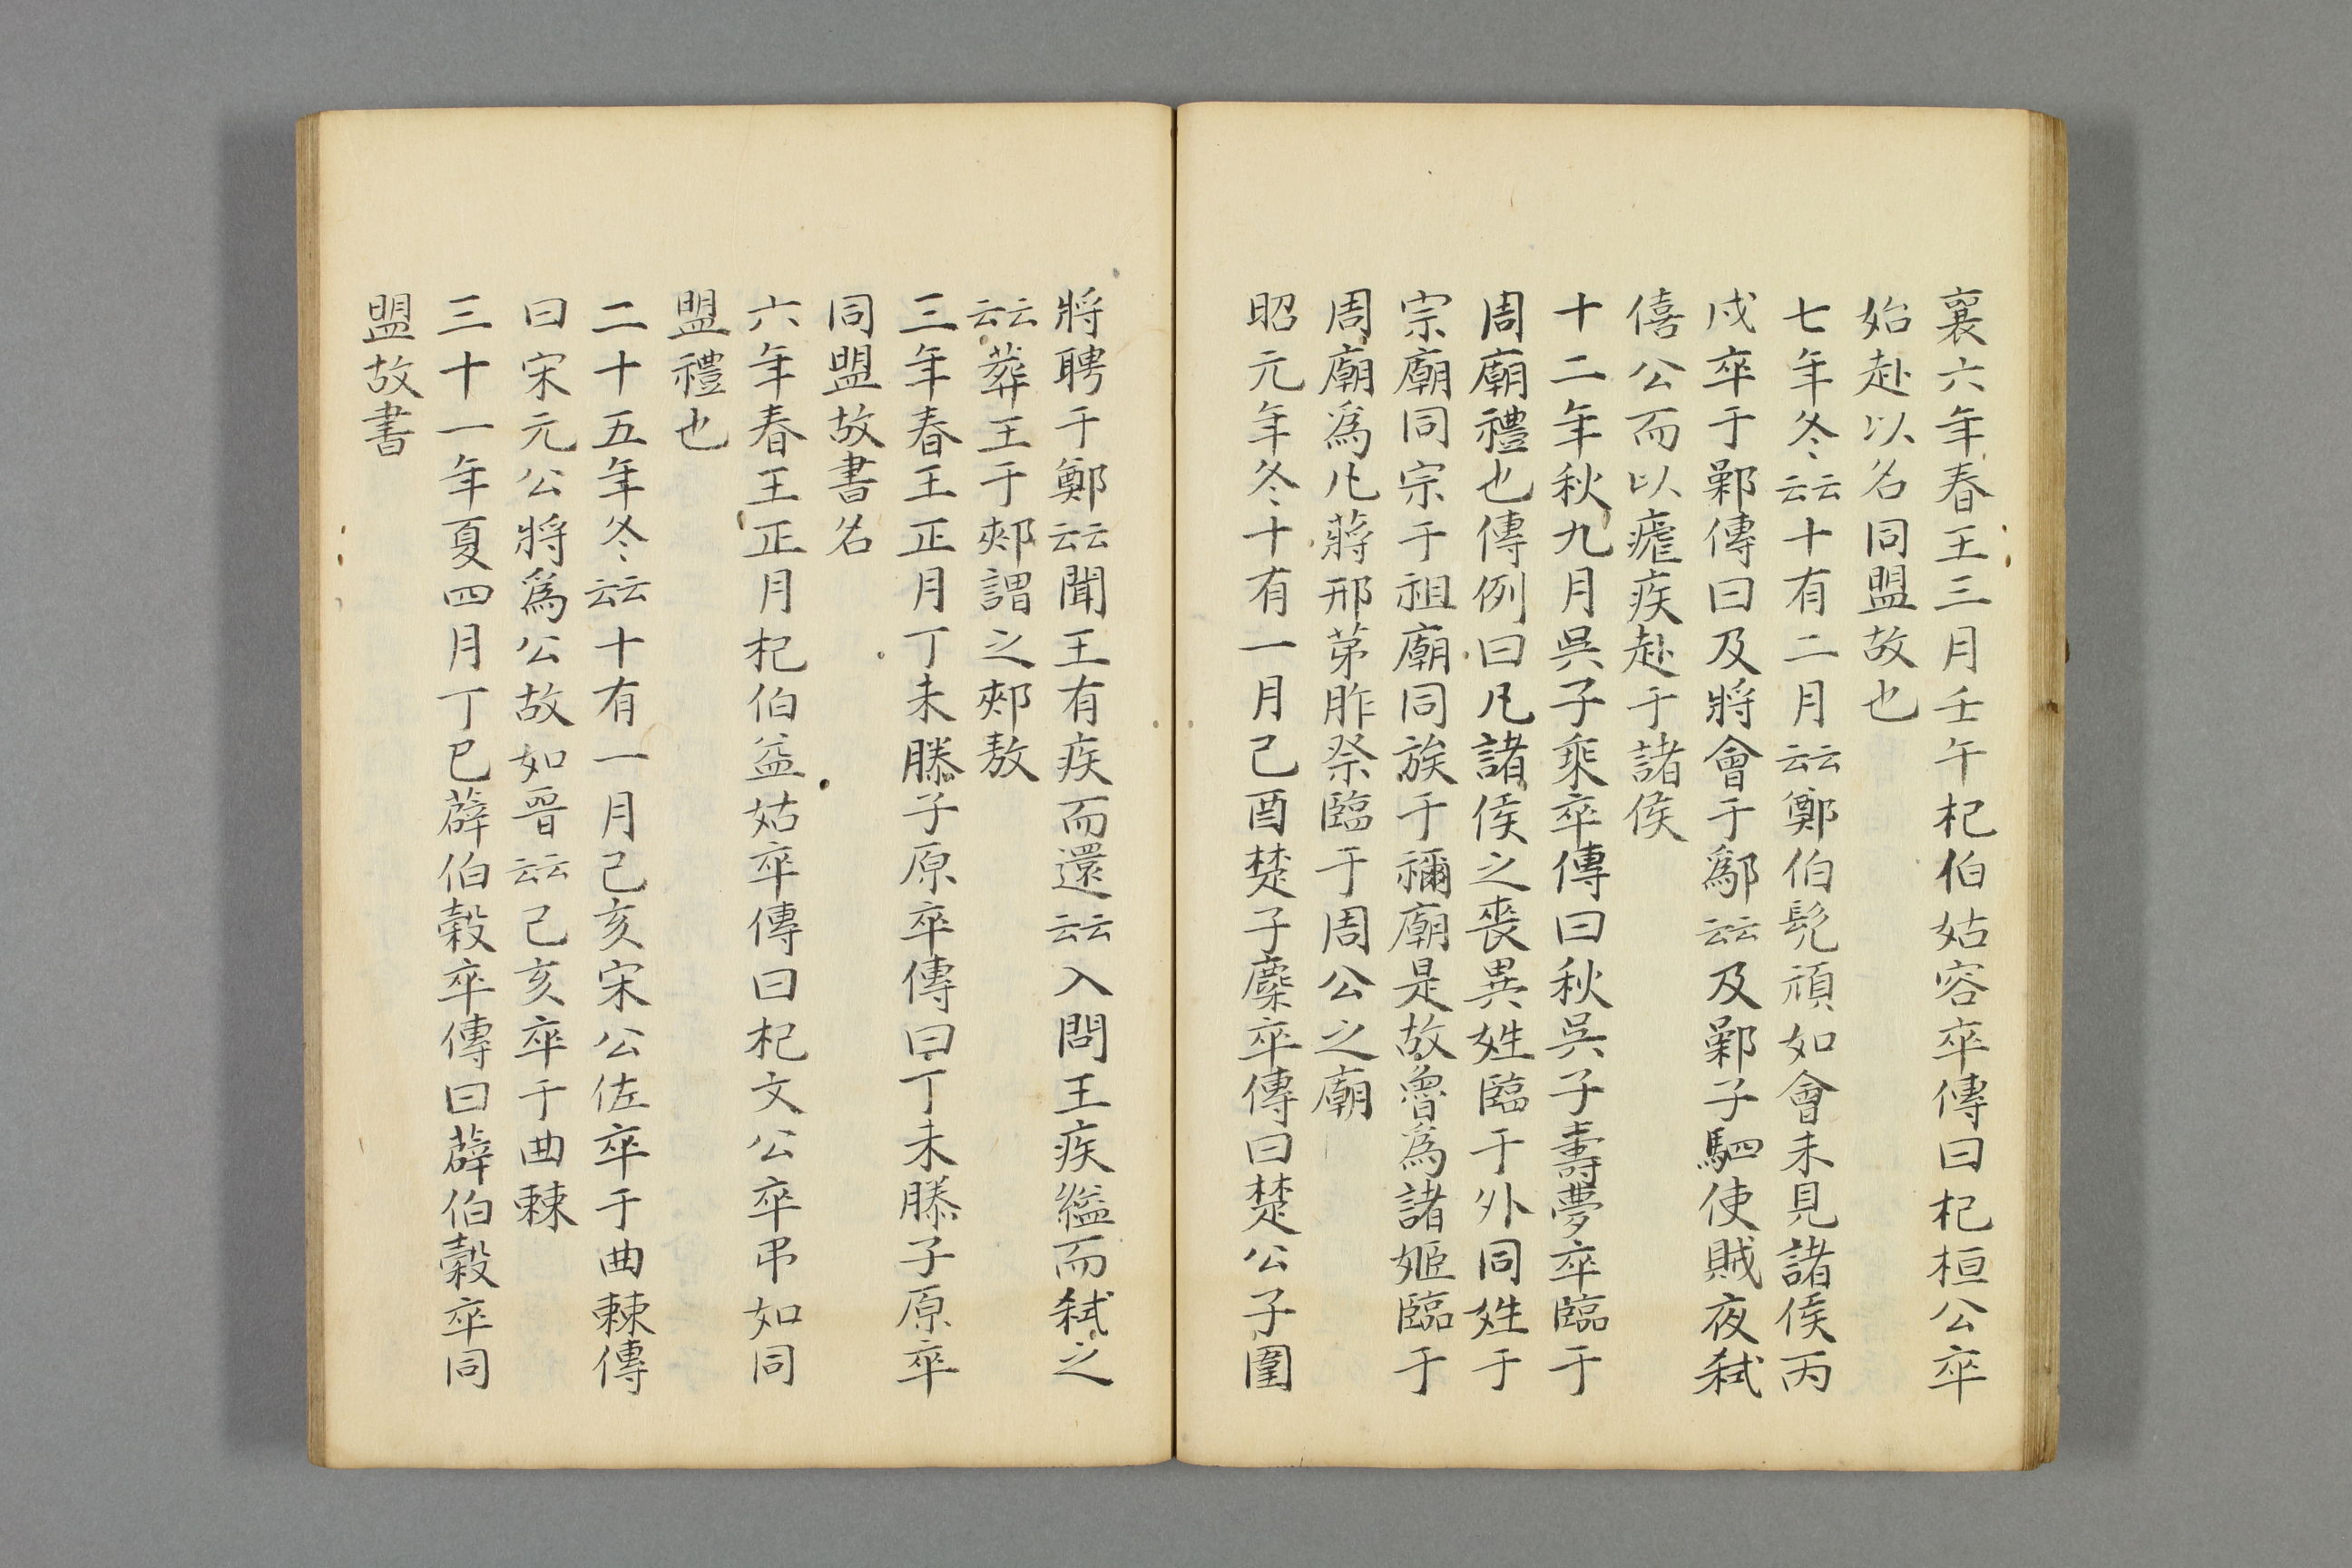 襄六年春王三月壬午杞伯姑容卒傳曰杞桓公卒
始赴以名同盟故也
七年冬云云十有二月云云鄭伯髡頑如會未見諸侯丙
戌卒于鄵傳曰及將會于鄬云云及鄵子駟使賊夜弒
僖公而以瘧疾赴于諸侯
十二年秋九月吳子乘卒傳曰秋吳子壽夢卒臨于
周廟禮也傳例曰凡諸侯之喪異姓臨于外同姓于
宗廟同宗于祖廟同族于禰廟是故魯爲諸姬臨于
周廟爲凡蔣邢茅胙祭臨于周公之廟
昭元年冬十有一月己酉楚子麇卒傳曰楚公子圍
將聘于鄭云云聞王有疾而還云云入問王疾縊而弒之
云云葬王于郟謂之郟敖
三年春王正月丁未滕子原卒傳曰丁未滕子原卒
同盟故書名
六年春王正月杞伯益姑卒傳曰杞文公卒弔如同
盟禮也
二十五年冬云云十有一月己亥宋公佐卒于曲棘傳
曰宋元公將爲公故如晉云云己亥卒于曲棘
三十一年夏四月丁巳薛伯穀卒傳曰薛伯穀卒同
盟故書